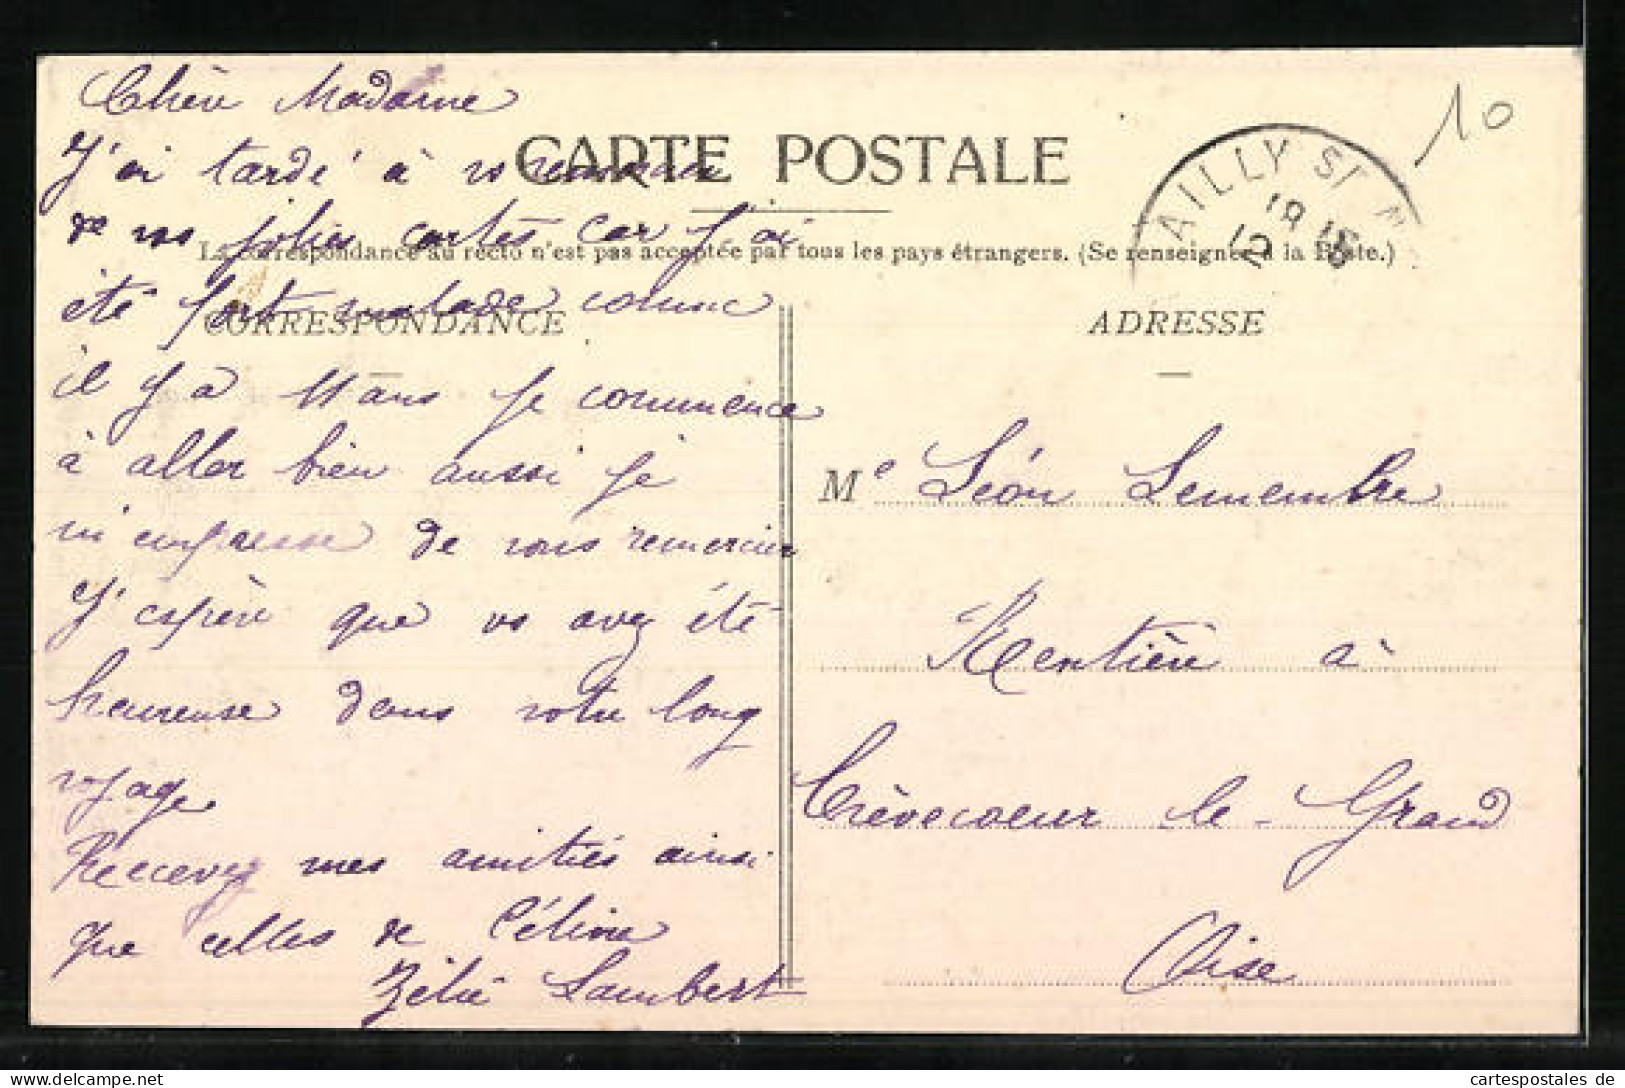 Chère Madame
J'ai tardé à vs remercier
de vos jolies cartes car j'ai
été fort malade comme
il y a 11 ans je commence
à aller bien aussi je
m'empresse de vous remercier
J'espère que vs avez été
heureuse dans votre long
voyage
Recevez mes amitiés ainsi
que celles de Céline
Zélie Lambert
CARTE POSTALE
La correspondance au recto n'est pas acceptée par tous les pays étrangers. (Se renseigner à la Poste.)
CORRESPONDANCE
ADRESSE
AILLY ST N
10
Me Léon Lemembre
Rentière à
Crèvecoeur le-Grand
Oise
cartespostales de